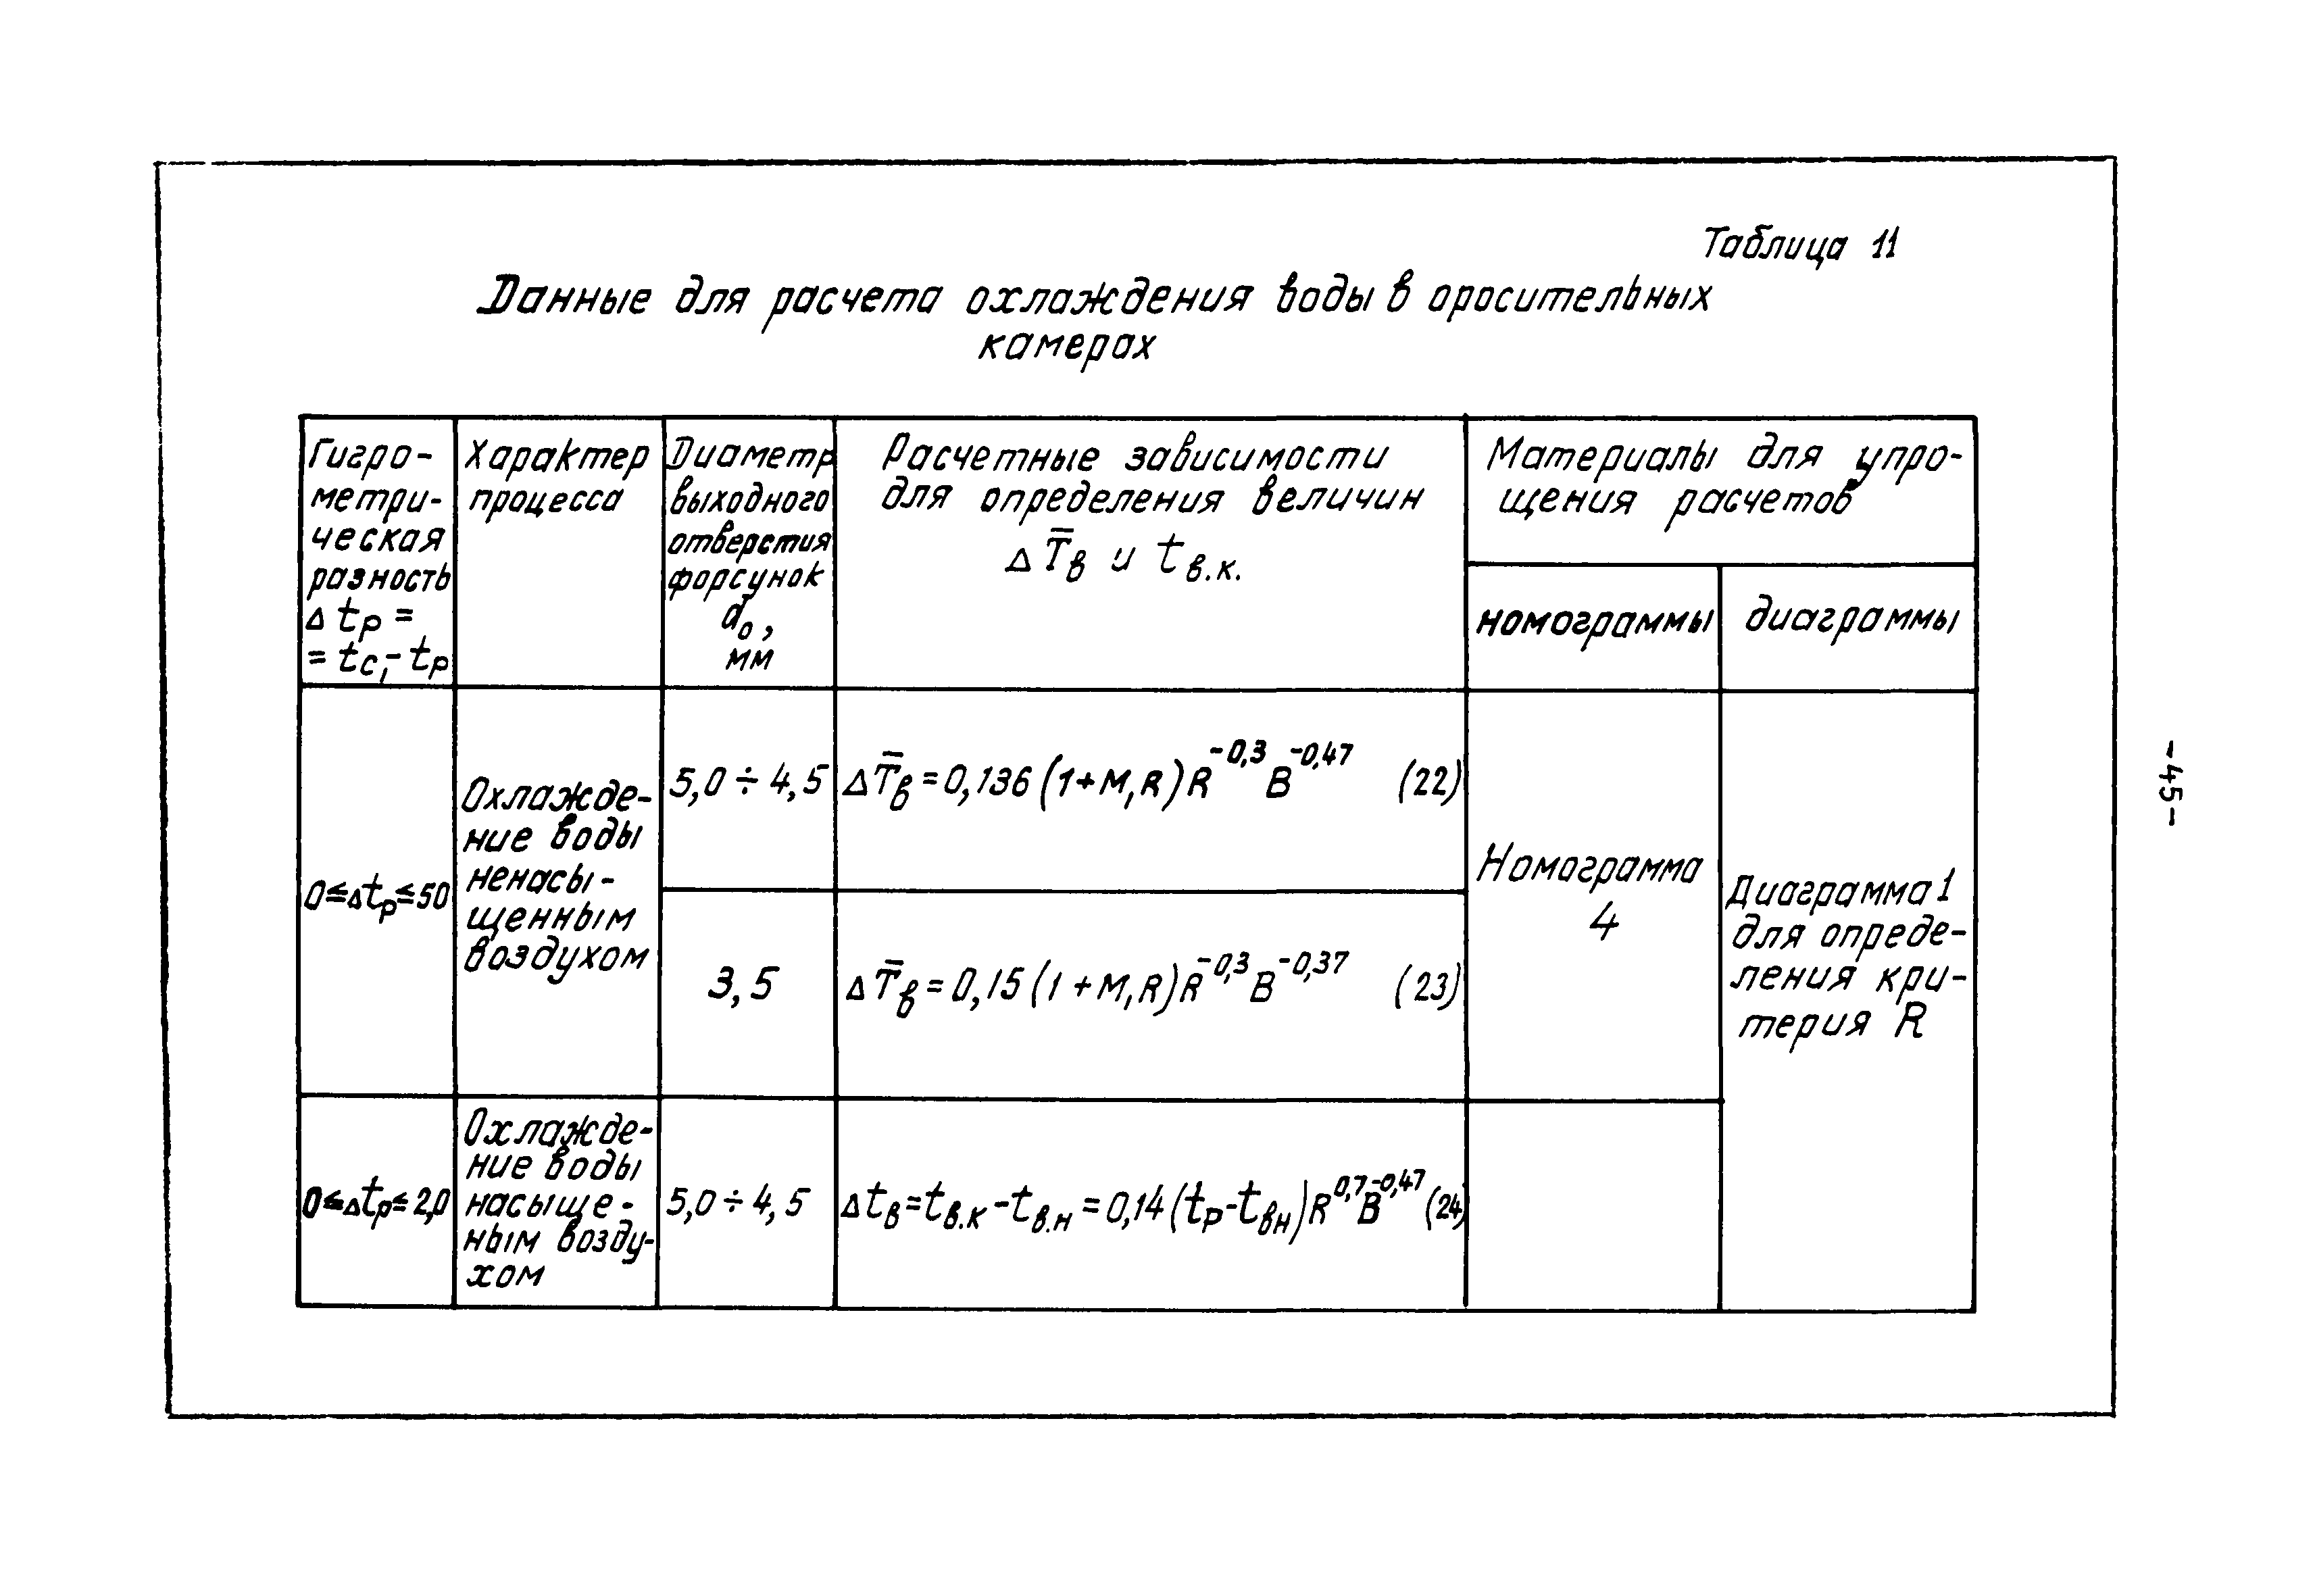 Таблица 11
Данные для расчета охлаждения воды в оросительных
камерах
Гигро-
метри-
ческая
разность
Δtр =
= tс₁ - tр
Характер
процесса
Диаметр
выходного
отверстия
форсунок
d₀,
мм
Расчетные зависимости
для определения величин
ΔT̅в и tв.к.
Материалы для упро-
щения расчетов
номограммы
диаграммы
0≤Δtр≤50
Охлажде-
ние воды
ненасы-
щенным
воздухом
5,0 ÷ 4,5
ΔT̅в = 0,136 (1+M₁R) R^-0,3 B^-0,47 (22)
3,5
ΔT̅в = 0,15 (1+M₁R) R^-0,3 B^-0,37 (23)
Номограмма
4
Диаграмма 1
для опреде-
ления кри-
терия R
0≤Δtр≤2,0
Охлажде-
ние воды
насыще-
ным возду-
хом
5,0 ÷ 4,5
Δtв = tв.к - tв.н = 0,14 (tр - tвн) R^0,7 B^-0,47 (24)
-45-